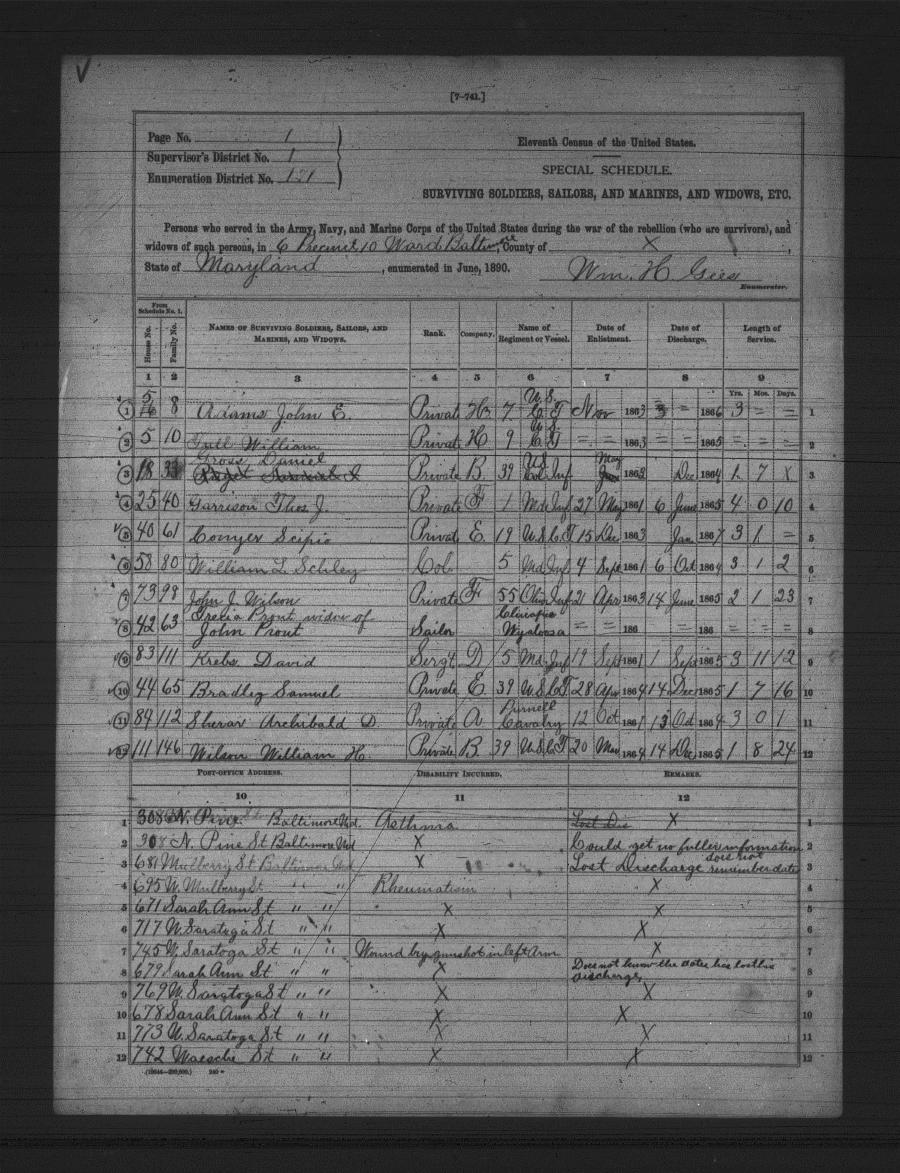 [7-741.]
Page No. 1
Supervisor's District No. 1
Enumeration District No. 121
Eleventh Census of the United States.
SPECIAL SCHEDULE.
SURVIVING SOLDIERS, SAILORS, AND MARINES, AND WIDOWS, ETC.
Persons who served in the Army, Navy, and Marine Corps of the United States during the war of the rebellion (who are survivors), and
widows of such persons, in 6 Precinct 10 Ward Baltimore, County of X,
State of Maryland, enumerated in June, 1890. Wm. H Gees
Enumerator.
From Schedule No. 1.
House No. Family No. NAMES OF SURVIVING SOLDIERS, SAILORS, AND MARINES, AND WIDOWS. Rank. Company. Name of Regiment or Vessel. Date of Enlistment. Date of Discharge. Length of Service.
1 2 3 4 5 6 7 8 9
Yrs. Mos. Days.
1 5 8 Adams John E. Private 7 U.S. C T Nov 1863 = 1866 3 = = 1
2 5 10 William Private H 9 U.S. C T = = 1863 = = 1865 = = = 2
3 18 Gross Daniel Private B 39 U S Col Inf May 1863 Dec 1864 1 7 X 3
4 25 40 Garrison Thos J. Private F 1 Md Inf 27 May 1861 6 June 1865 4 0 10 4
5 40 61 Conyer Scipio Privat E 19 U S C T 15 Dec 1863 Jan 1867 3 1 = 5
6 58 80 William L Schley Col 5 Md Inf 4 Sept 1861 6 Oct 1864 3 1 2 6
7 73 98 John J Wilson Private F 55 Ohio Inf 21 Apr 1863 14 June 1865 2 1 23 7
8 42 63 Prout widow of John Prout Sailor Wyalosa = = 186 = = 186 = = = 8
9 83 111 Krebs David Sergt D 5 Md Inf 19 Sept 1861 1 Sept 1865 3 11 12 9
10 44 65 Bradley Samuel Private E 39 U S C T 28 Apr 1864 14 Dec 1865 1 7 16 10
11 84 112 Sherar Archibald D. Private A Purnell Cavalry 12 Oct 1861 13 Oct 1864 3 0 1 11
12 111 146 Wilson William H Private B 39 U S C T 20 Mar 1864 14 Dec 1865 1 8 24 12
POST-OFFICE ADDRESS. DISABILITY INCURRED. REMARKS.
10 11 12
1 308 N. Pine St Baltimore Md. Asthma Lost Dis X 1
2 308 N. Pine St Baltimore Md X Could get no fuller information 2
3 681 Mulberry St Baltimore Md X Lost Discharge does not remember date 3
4 695 W. Mulberry St " " Rheumatism X 4
5 671 Sarah Ann St " " X X 5
6 717 W Saratoga St " " X X 6
7 745 W. Saratoga St " " Wound by gunshot in left Arm X 7
8 679 Sarah Ann St " " X Does not know the dates has lost his discharge 8
9 769 W Saratoga St " " X X 9
10 678 Sarah Ann St " " X X 10
11 773 W. Saratoga St " " X X 11
12 742 Waesche St " " X X 12